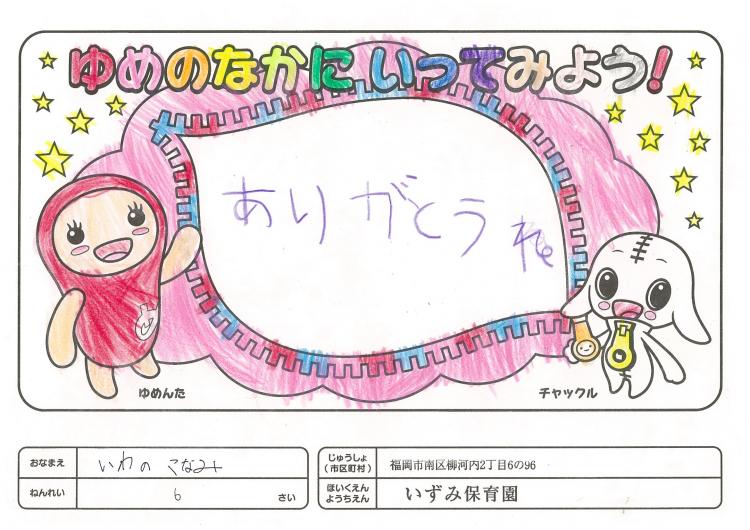 ゆめのなかに いってみよう!
ありがとうね
ゆめんた
チャックル
おなまえ いわの こなみ
ねんれい 6 さい
じゅうしょ
(市区町村) 福岡市南区柳河内2丁目6の96
ほいくえん
ようちえん いずみ保育園